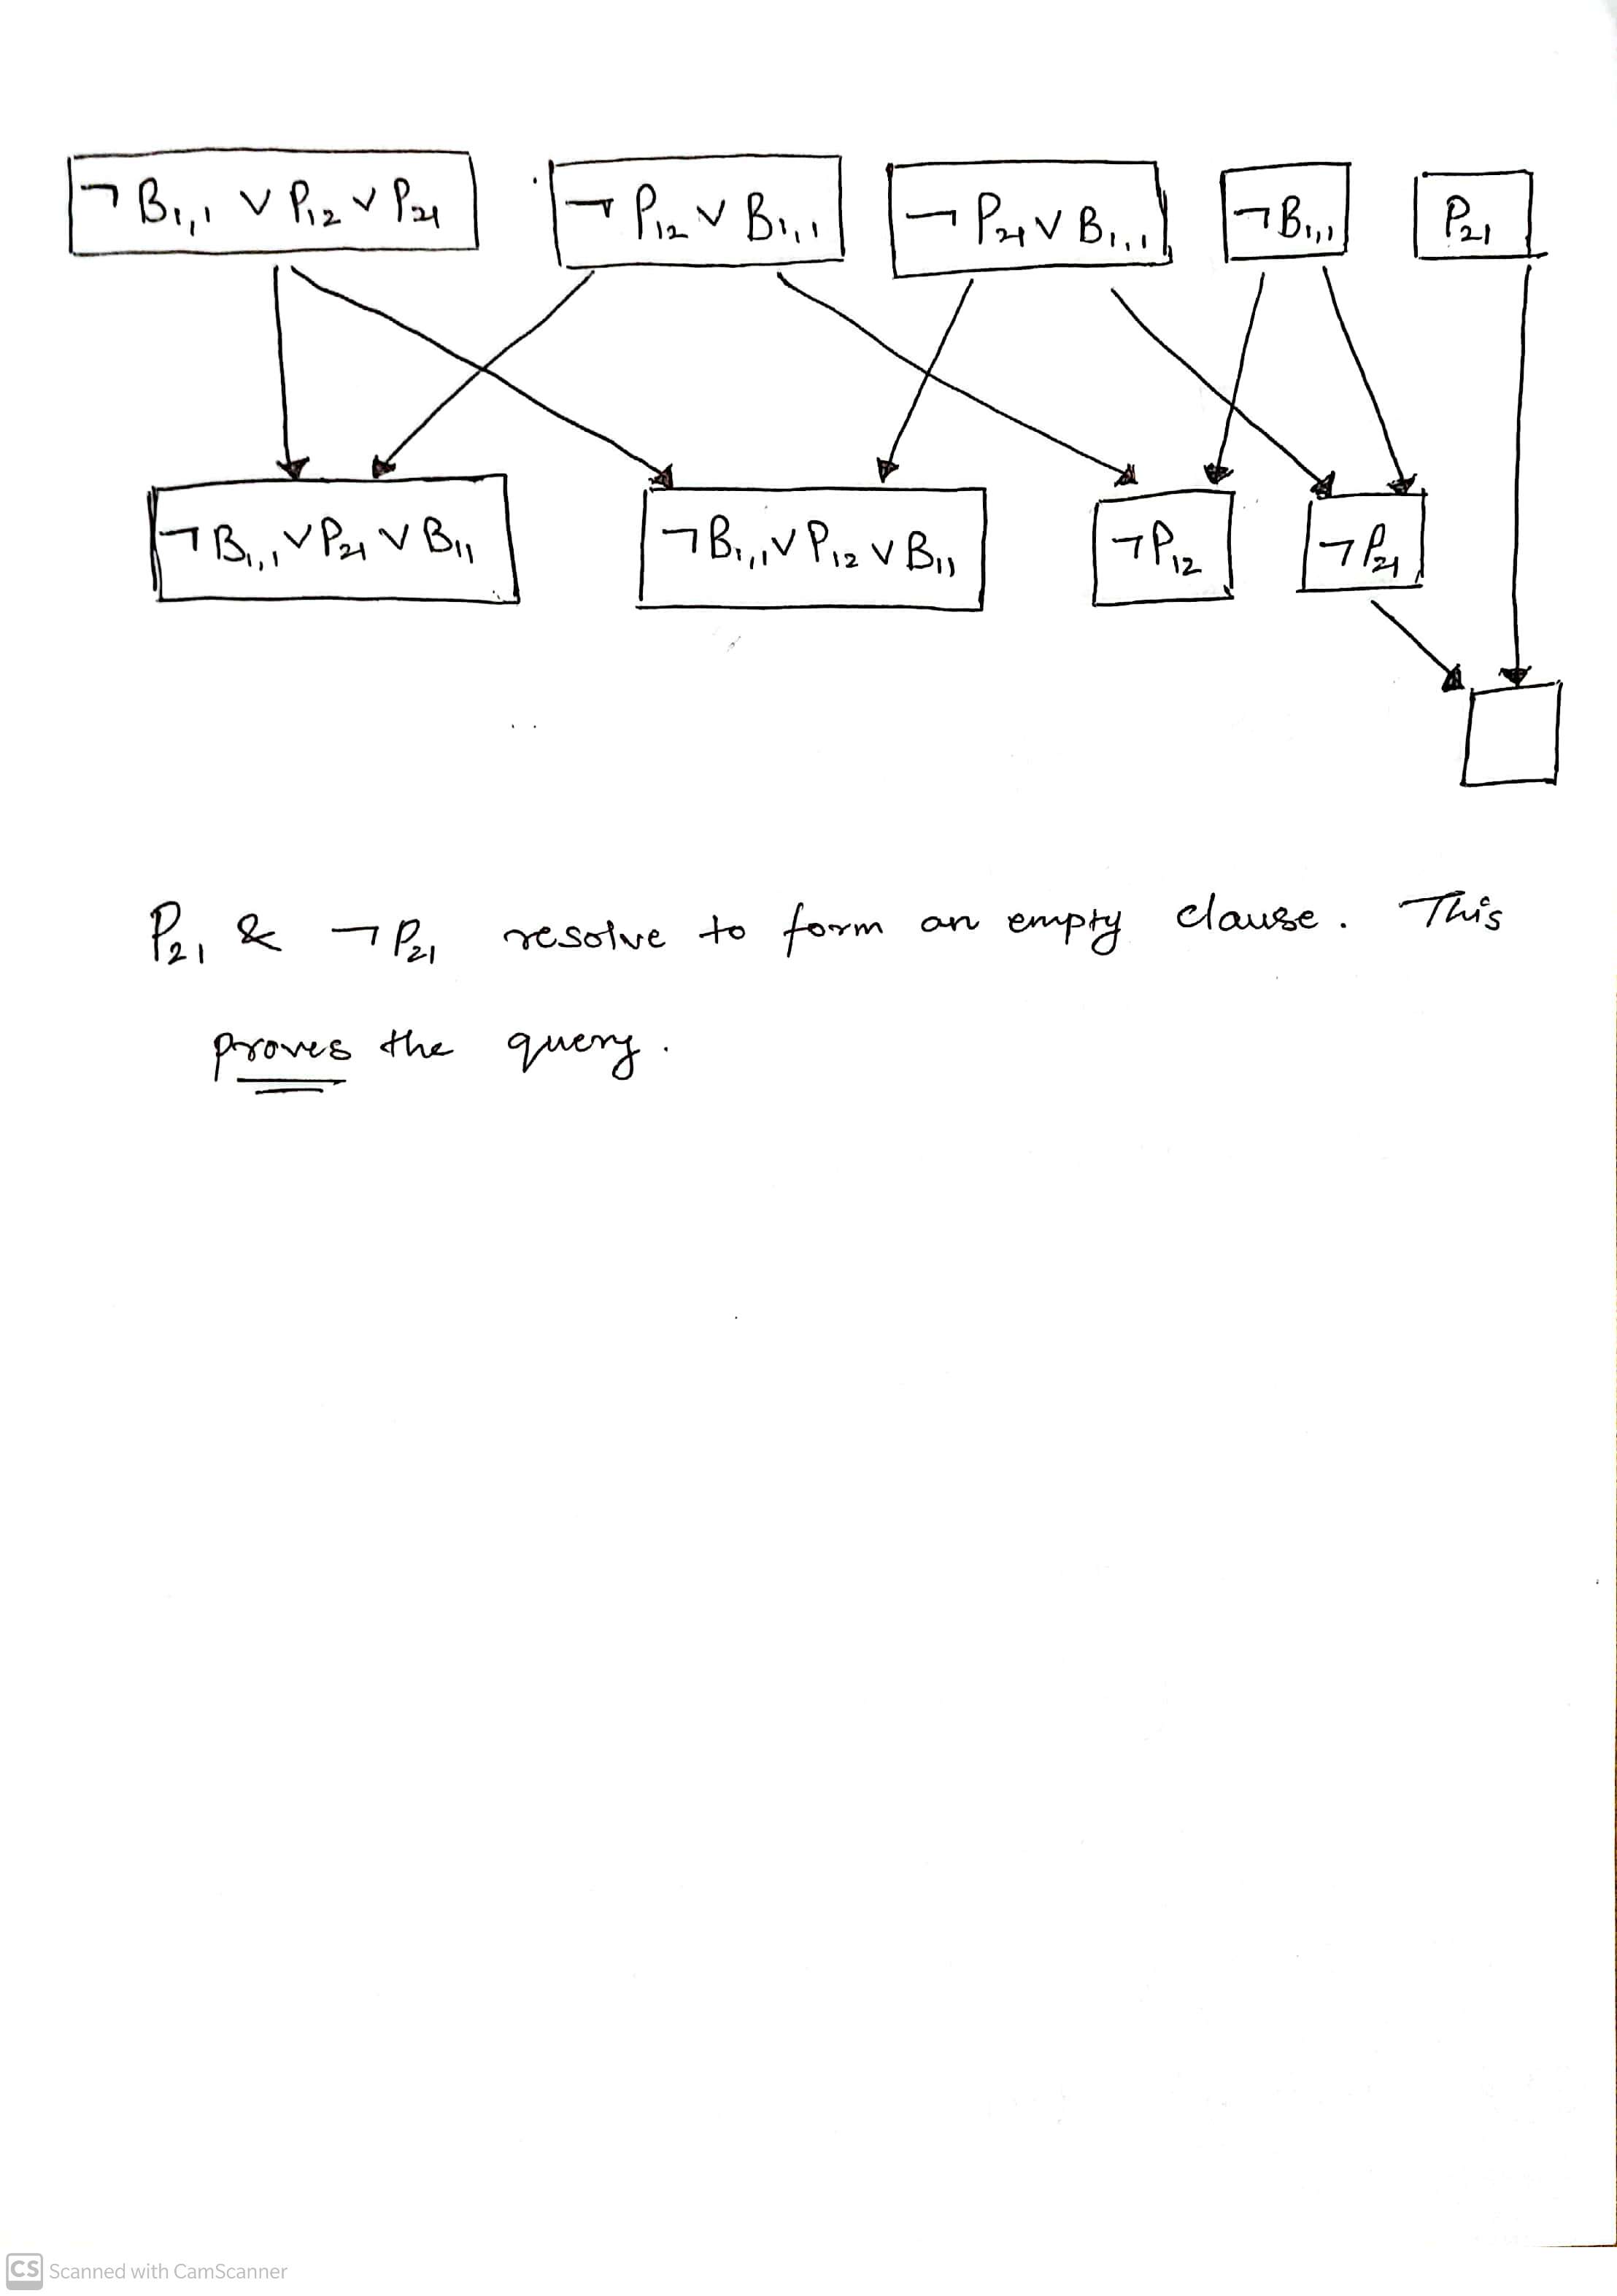 ¬ B₁,₁ ∨ P₁₂ ∨ P₂₁   ¬ P₁₂ ∨ B₁,₁   ¬ P₂₁ ∨ B₁,₁   ¬ B₁,₁   P₂₁
¬ B₁,₁ ∨ P₂₁ ∨ B₁₁   ¬ B₁,₁ ∨ P₁₂ ∨ B₁₁   ¬ P₁₂   ¬ P₂₁
P₂₁ & ¬ P₂₁ resolve to form an empty clause. This
proves the query.
CS Scanned with CamScanner